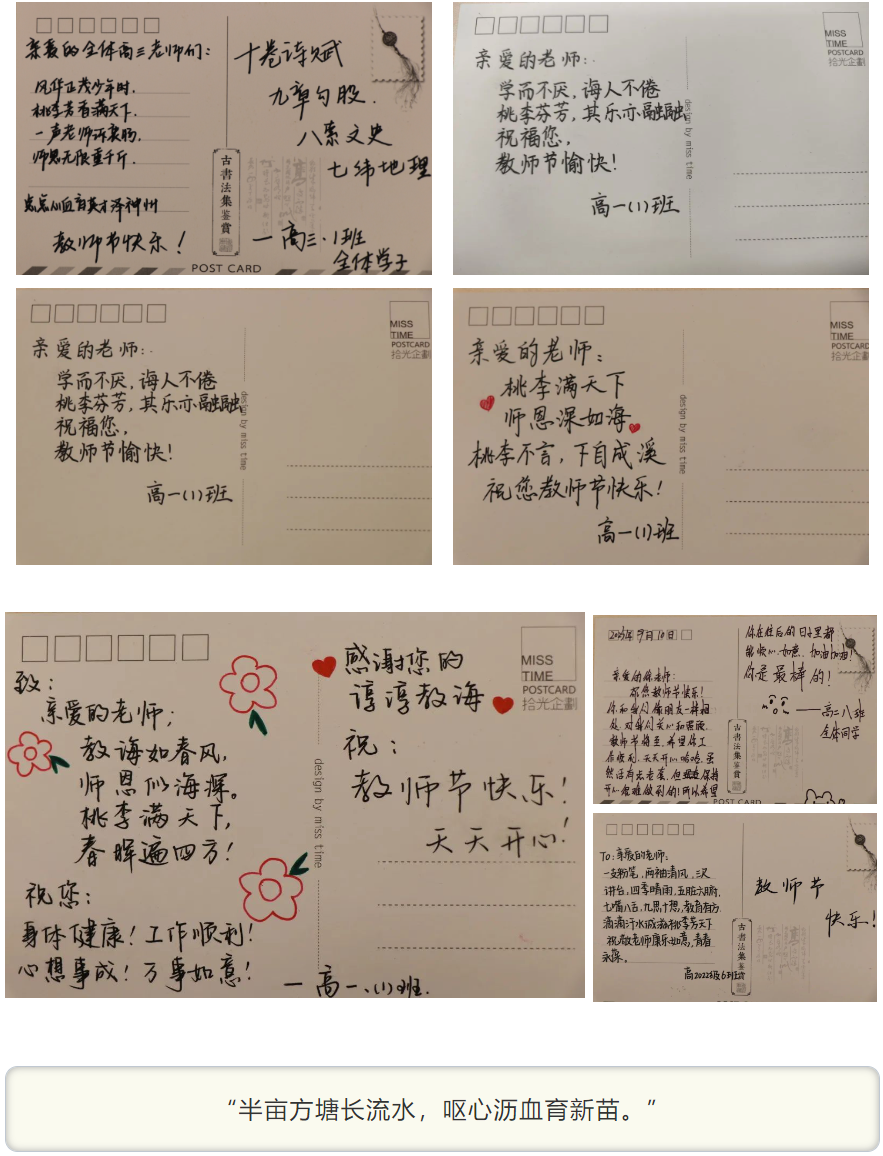 亲爱的全体高三老师们：
风华正茂少年时，
桃李芳香满天下。
一声老师诉衷肠，
师恩无限重千斤。
点点心血育英才泽神州
教师节快乐！
十卷诗赋
九章勾股．
八索文史
七纬地理
一高三．1班
全体学子
古書法集鉴賞
POST CARD
亲爱的老师：
学而不厌，诲人不倦
桃李芬芳，其乐亦融融，
祝福您，
教师节愉快！
高一(1)班
design by miss time
MISS
TIME
POSTCARD
拾光企劃
亲爱的老师：
学而不厌，诲人不倦
桃李芬芳，其乐亦融融，
祝福您，
教师节愉快！
高一(1)班
design by miss time
MISS
TIME
POSTCARD
拾光企劃
亲爱的老师：
桃李满天下
师恩深如海
桃李不言，下自成溪
祝您教师节快乐！
高一(1)班
design by miss time
MISS
TIME
POSTCARD
拾光企劃
致：
亲爱的老师；
教诲如春风，
师恩似海深。
桃李满天下，
春晖遍四方！
祝您：
身体健康！工作顺利！
心想事成！万事如意！
感谢您的
谆谆教诲
祝：
教师节快乐！
天天开心！
一高一、(1)班．
design by miss time
MISS
TIME
POSTCARD
拾光企劃
2023年9月10日
老师：
教师节快乐！
你和我们像朋友一样相
处，对我们关心和照顾，
教师节将至，希望你工
作顺利、天天开心哈哈，虽
你在往后的日子里都
能快心如意，加油加油！
你是最棒的！
——高二八班
全体同学
古書法集鉴賞
POST CARD
To：亲爱的老师：
一支粉笔，两袖清风，三尺
讲台，四季晴雨，五脏六腑，
七嘴八舌，九思十想，教育有方，
滴滴汗水诚滋桃李芳天下
祝敬老师康乐如意，青春
永葆。
高2022级6班
教师节
快乐！
古書法集鉴賞
“半亩方塘长流水，呕心沥血育新苗。”